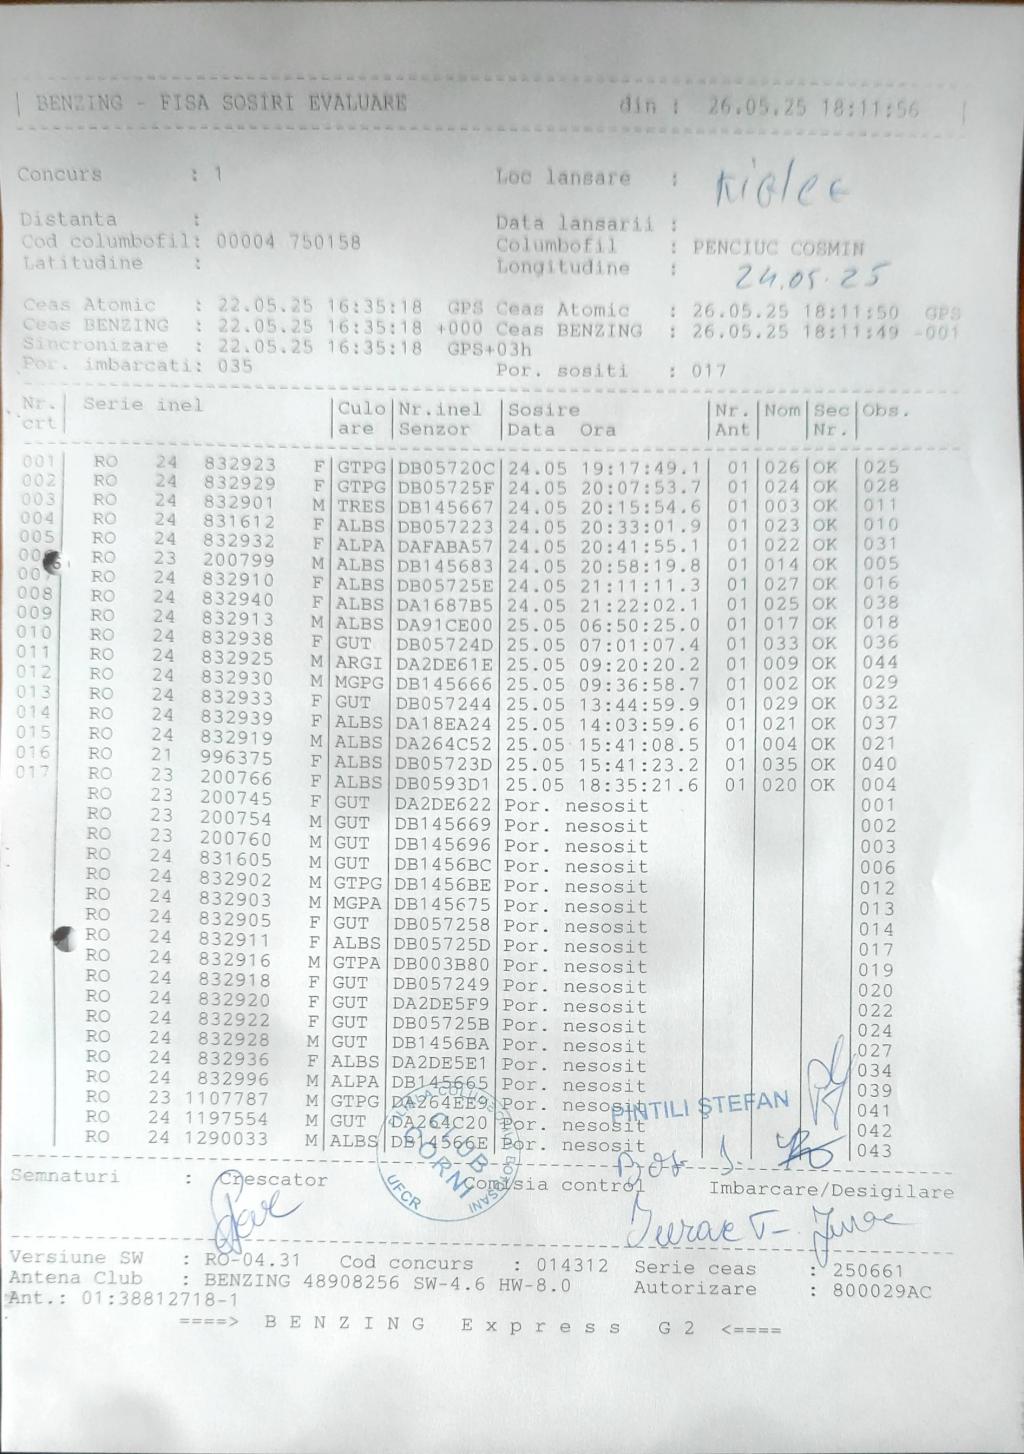 BENZING - FISA SOSIRI EVALUARE din : 26.05.25 18:11:56
Concurs : 1 Loc lansare :
Distanta : Data lansarii :
Cod columbofil: 00004 750158 Columbofil : PENCIUC COSMIN
Latitudine : Longitudine : 24.05.25
Ceas Atomic : 22.05.25 16:35:18 GPS Ceas Atomic : 26.05.25 18:11:50 GPS
Ceas BENZING : 22.05.25 16:35:18 +000 Ceas BENZING : 26.05.25 18:11:49 -001
Sincronizare : 22.05.25 16:35:18 GPS+03h
Por. imbarcati: 035 Por. sositi : 017
Nr. Serie inel Culo Nr.inel Sosire Nr. Nom Sec Obs.
crt are Senzor Data Ora Ant Nr.
001 RO 24 832923 F GTPG DB05720C 24.05 19:17:49.1 01 026 OK 025
002 RO 24 832929 F GTPG DB05725F 24.05 20:07:53.7 01 024 OK 028
003 RO 24 832901 M TRES DB145667 24.05 20:15:54.6 01 003 OK 011
004 RO 24 831612 F ALBS DB057223 24.05 20:33:01.9 01 023 OK 010
005 RO 24 832932 F ALPA DAFABA57 24.05 20:41:55.1 01 022 OK 031
006 RO 23 200799 M ALBS DB145683 24.05 20:58:19.8 01 014 OK 005
007 RO 24 832910 F ALBS DB05725E 24.05 21:11:11.3 01 027 OK 016
008 RO 24 832940 F ALBS DA1687B5 24.05 21:22:02.1 01 025 OK 038
009 RO 24 832913 M ALBS DA91CE00 25.05 06:50:25.0 01 017 OK 018
010 RO 24 832938 F GUT DB05724D 25.05 07:01:07.4 01 033 OK 036
011 RO 24 832925 M ARGI DA2DE61E 25.05 09:20:20.2 01 009 OK 044
012 RO 24 832930 M MGPG DB145666 25.05 09:36:58.7 01 002 OK 029
013 RO 24 832933 F GUT DB057244 25.05 13:44:59.9 01 029 OK 032
014 RO 24 832939 F ALBS DA18EA24 25.05 14:03:59.6 01 021 OK 037
015 RO 24 832919 M ALBS DA264C52 25.05 15:41:08.5 01 004 OK 021
016 RO 21 996375 F ALBS DB05723D 25.05 15:41:23.2 01 035 OK 040
017 RO 23 200766 F ALBS DB0593D1 25.05 18:35:21.6 01 020 OK 004
RO 23 200745 F GUT DA2DE622 Por. nesosit 001
RO 23 200754 M GUT DB145669 Por. nesosit 002
RO 23 200760 M GUT DB145696 Por. nesosit 003
RO 24 831605 M GUT DB1456BC Por. nesosit 006
RO 24 832902 M GTPG DB1456BE Por. nesosit 012
RO 24 832903 M MGPA DB145675 Por. nesosit 013
RO 24 832905 F GUT DB057258 Por. nesosit 014
RO 24 832911 F ALBS DB05725D Por. nesosit 017
RO 24 832916 M GTPA DB003B80 Por. nesosit 019
RO 24 832918 F GUT DB057249 Por. nesosit 020
RO 24 832920 F GUT DA2DE5F9 Por. nesosit 022
RO 24 832922 F GUT DB05725B Por. nesosit 024
RO 24 832928 M GUT DB1456BA Por. nesosit 027
RO 24 832936 F ALBS DA2DE5E1 Por. nesosit 034
RO 24 832996 M ALPA DB145665 Por. nesosit 039
RO 23 1107787 M GTPG DA264EE9 Por. nesosit 041
RO 24 1197554 M GUT DA264C20 Por. nesosit 042
RO 24 1290033 M ALBS DB14566E Por. nesosit 043
PINTILI ŞTEFAN
CLUB
UFCR BOTOSANI
Semnaturi : Crescator Comisia control Imbarcare/Desigilare
Versiune SW : RO-04.31 Cod concurs : 014312 Serie ceas : 250661
Antena Club : BENZING 48908256 SW-4.6 HW-8.0 Autorizare : 800029AC
Ant.: 01:38812718-1
====> B E N Z I N G E x p r e s s G 2 <====